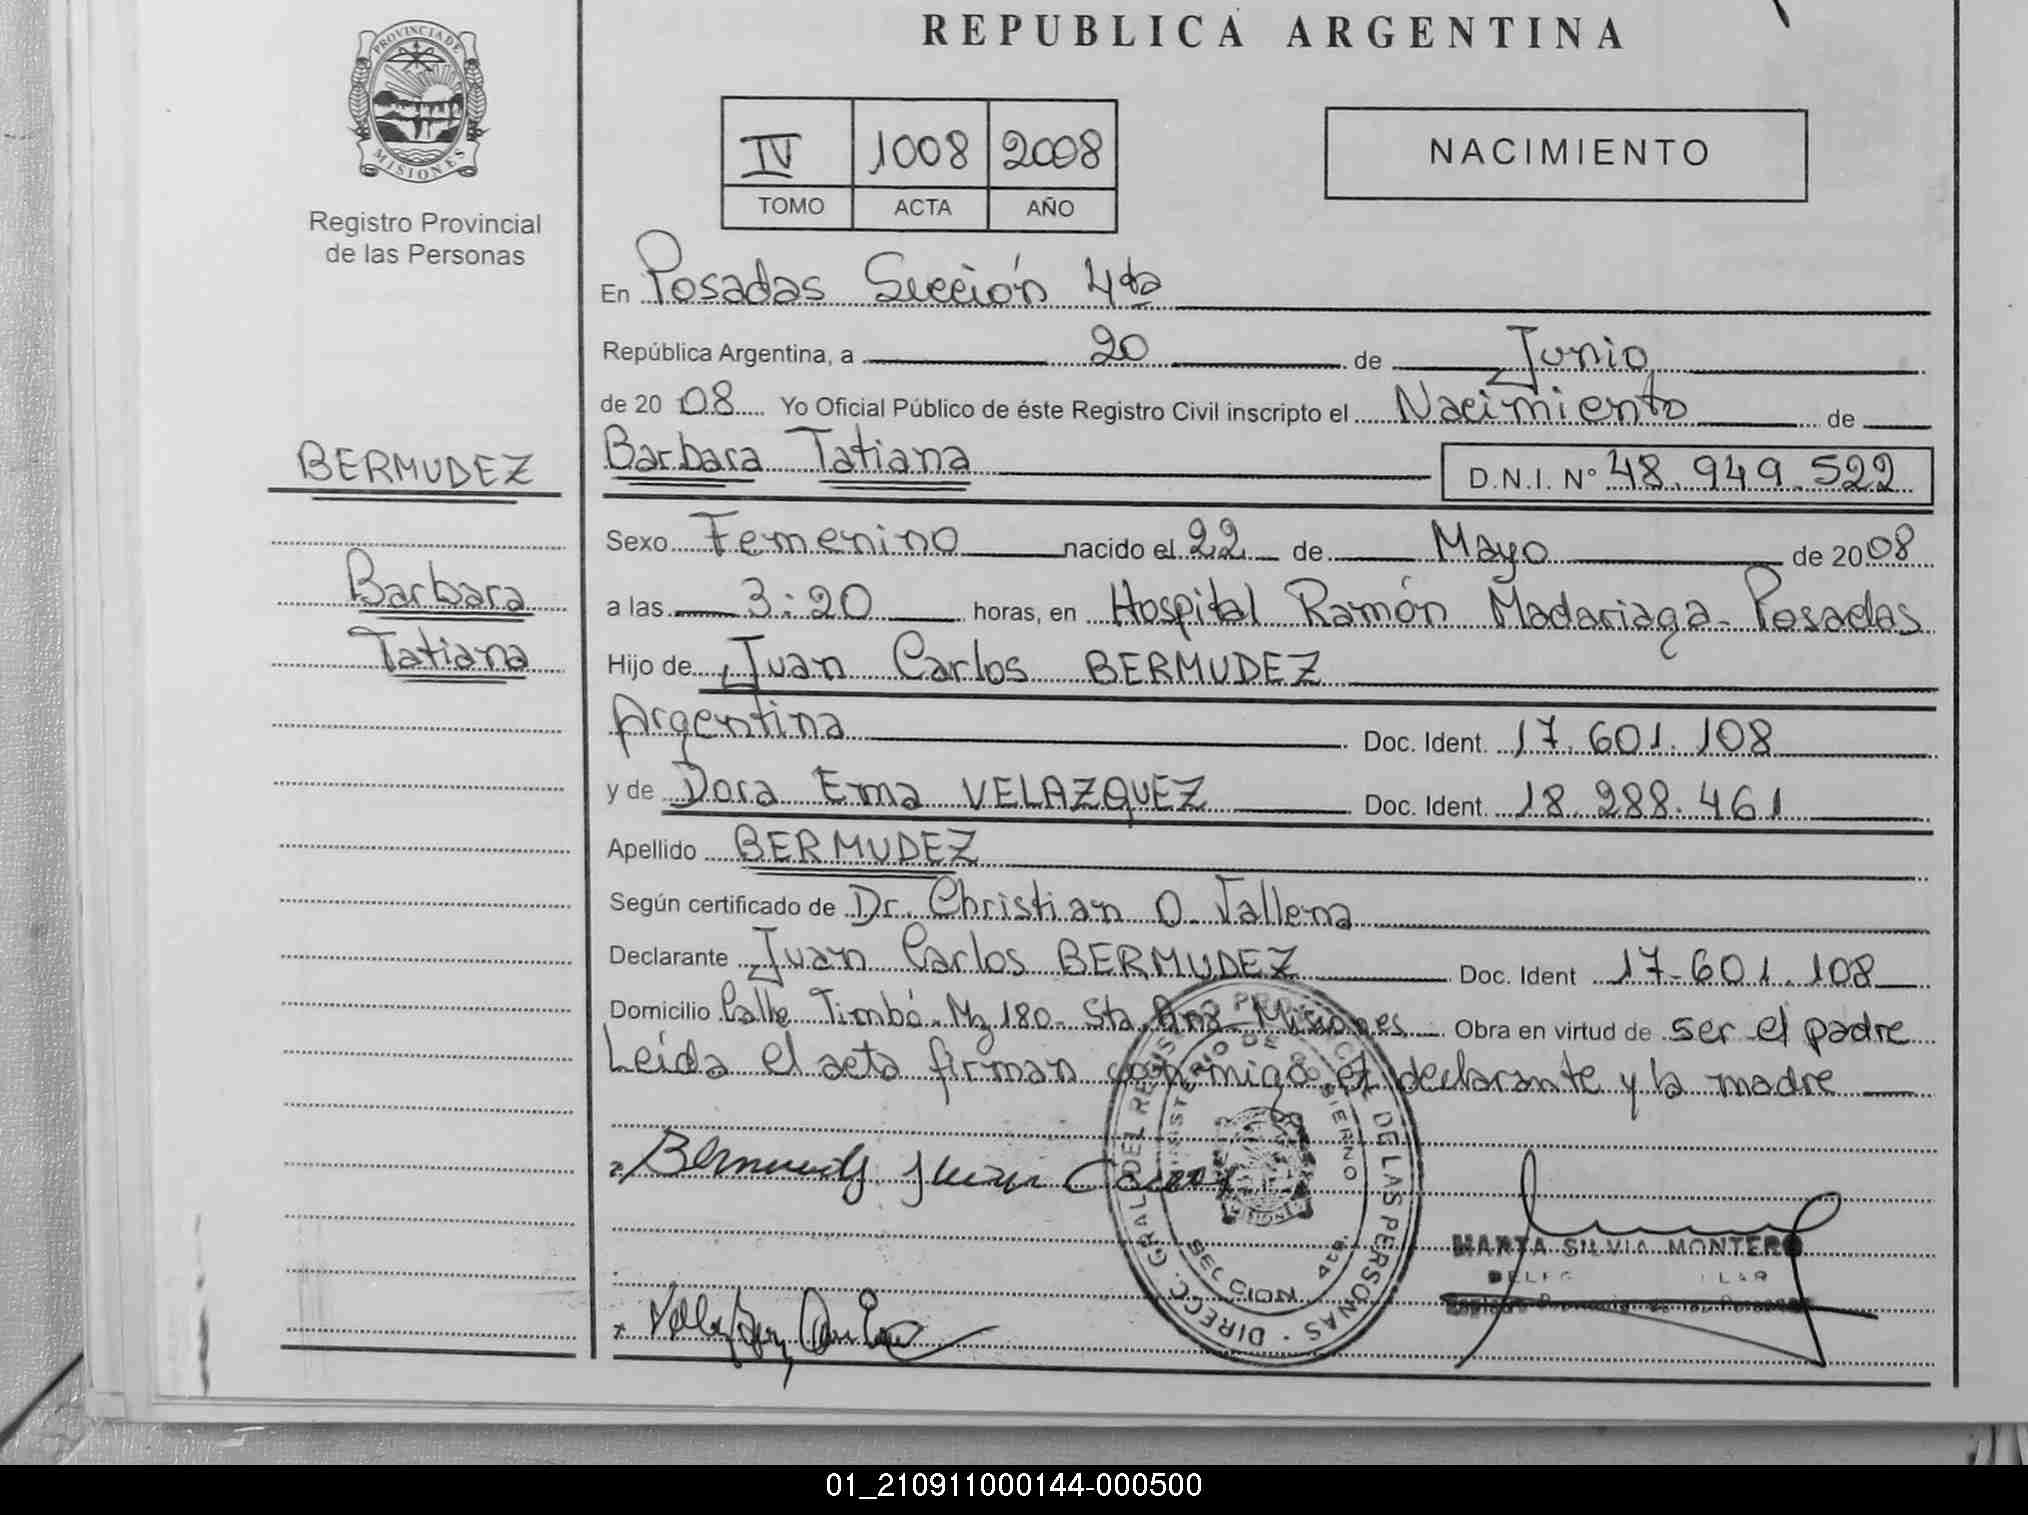 REPUBLICA ARGENTINA
PROVINCIA DE
MISIONES
Registro Provincial
de las Personas
IV 1008 2008
TOMO ACTA AÑO
NACIMIENTO
En Posadas Sección 4ta
República Argentina, a 20 de Junio
de 20 08 Yo Oficial Público de éste Registro Civil inscripto el Nacimiento de
BERMUDEZ
Barbara Tatiana D.N.I. Nº 48.949.522
Sexo Femenino nacido el 22 de Mayo de 2008
Barbara
a las 3:20 horas, en Hospital Ramón Madariaga - Posadas
Tatiana
Hijo de Juan Carlos BERMUDEZ
Argentina Doc. Ident. 17.601.108
y de Dora Ema VELAZQUEZ Doc. Ident. 18.288.461
Apellido BERMUDEZ
Según certificado de Dr. Christian O.
Declarante Juan Carlos BERMUDEZ Doc. Ident 17.601.108
Domicilio Calle Timbó. Mz 180. Sta. Ana - Misiones Obra en virtud de ser el padre
Leída el acta firman conmigo el declarante y la madre
DIRECC. GRAL. DEL REGISTRO PROVINCIAL DE LAS PERSONAS
MINISTERIO DE GOBIERNO
SECCION 4ta.
Bermudez Juan Carlos
MARTA SILVIA MONTERO
01_210911000144-000500